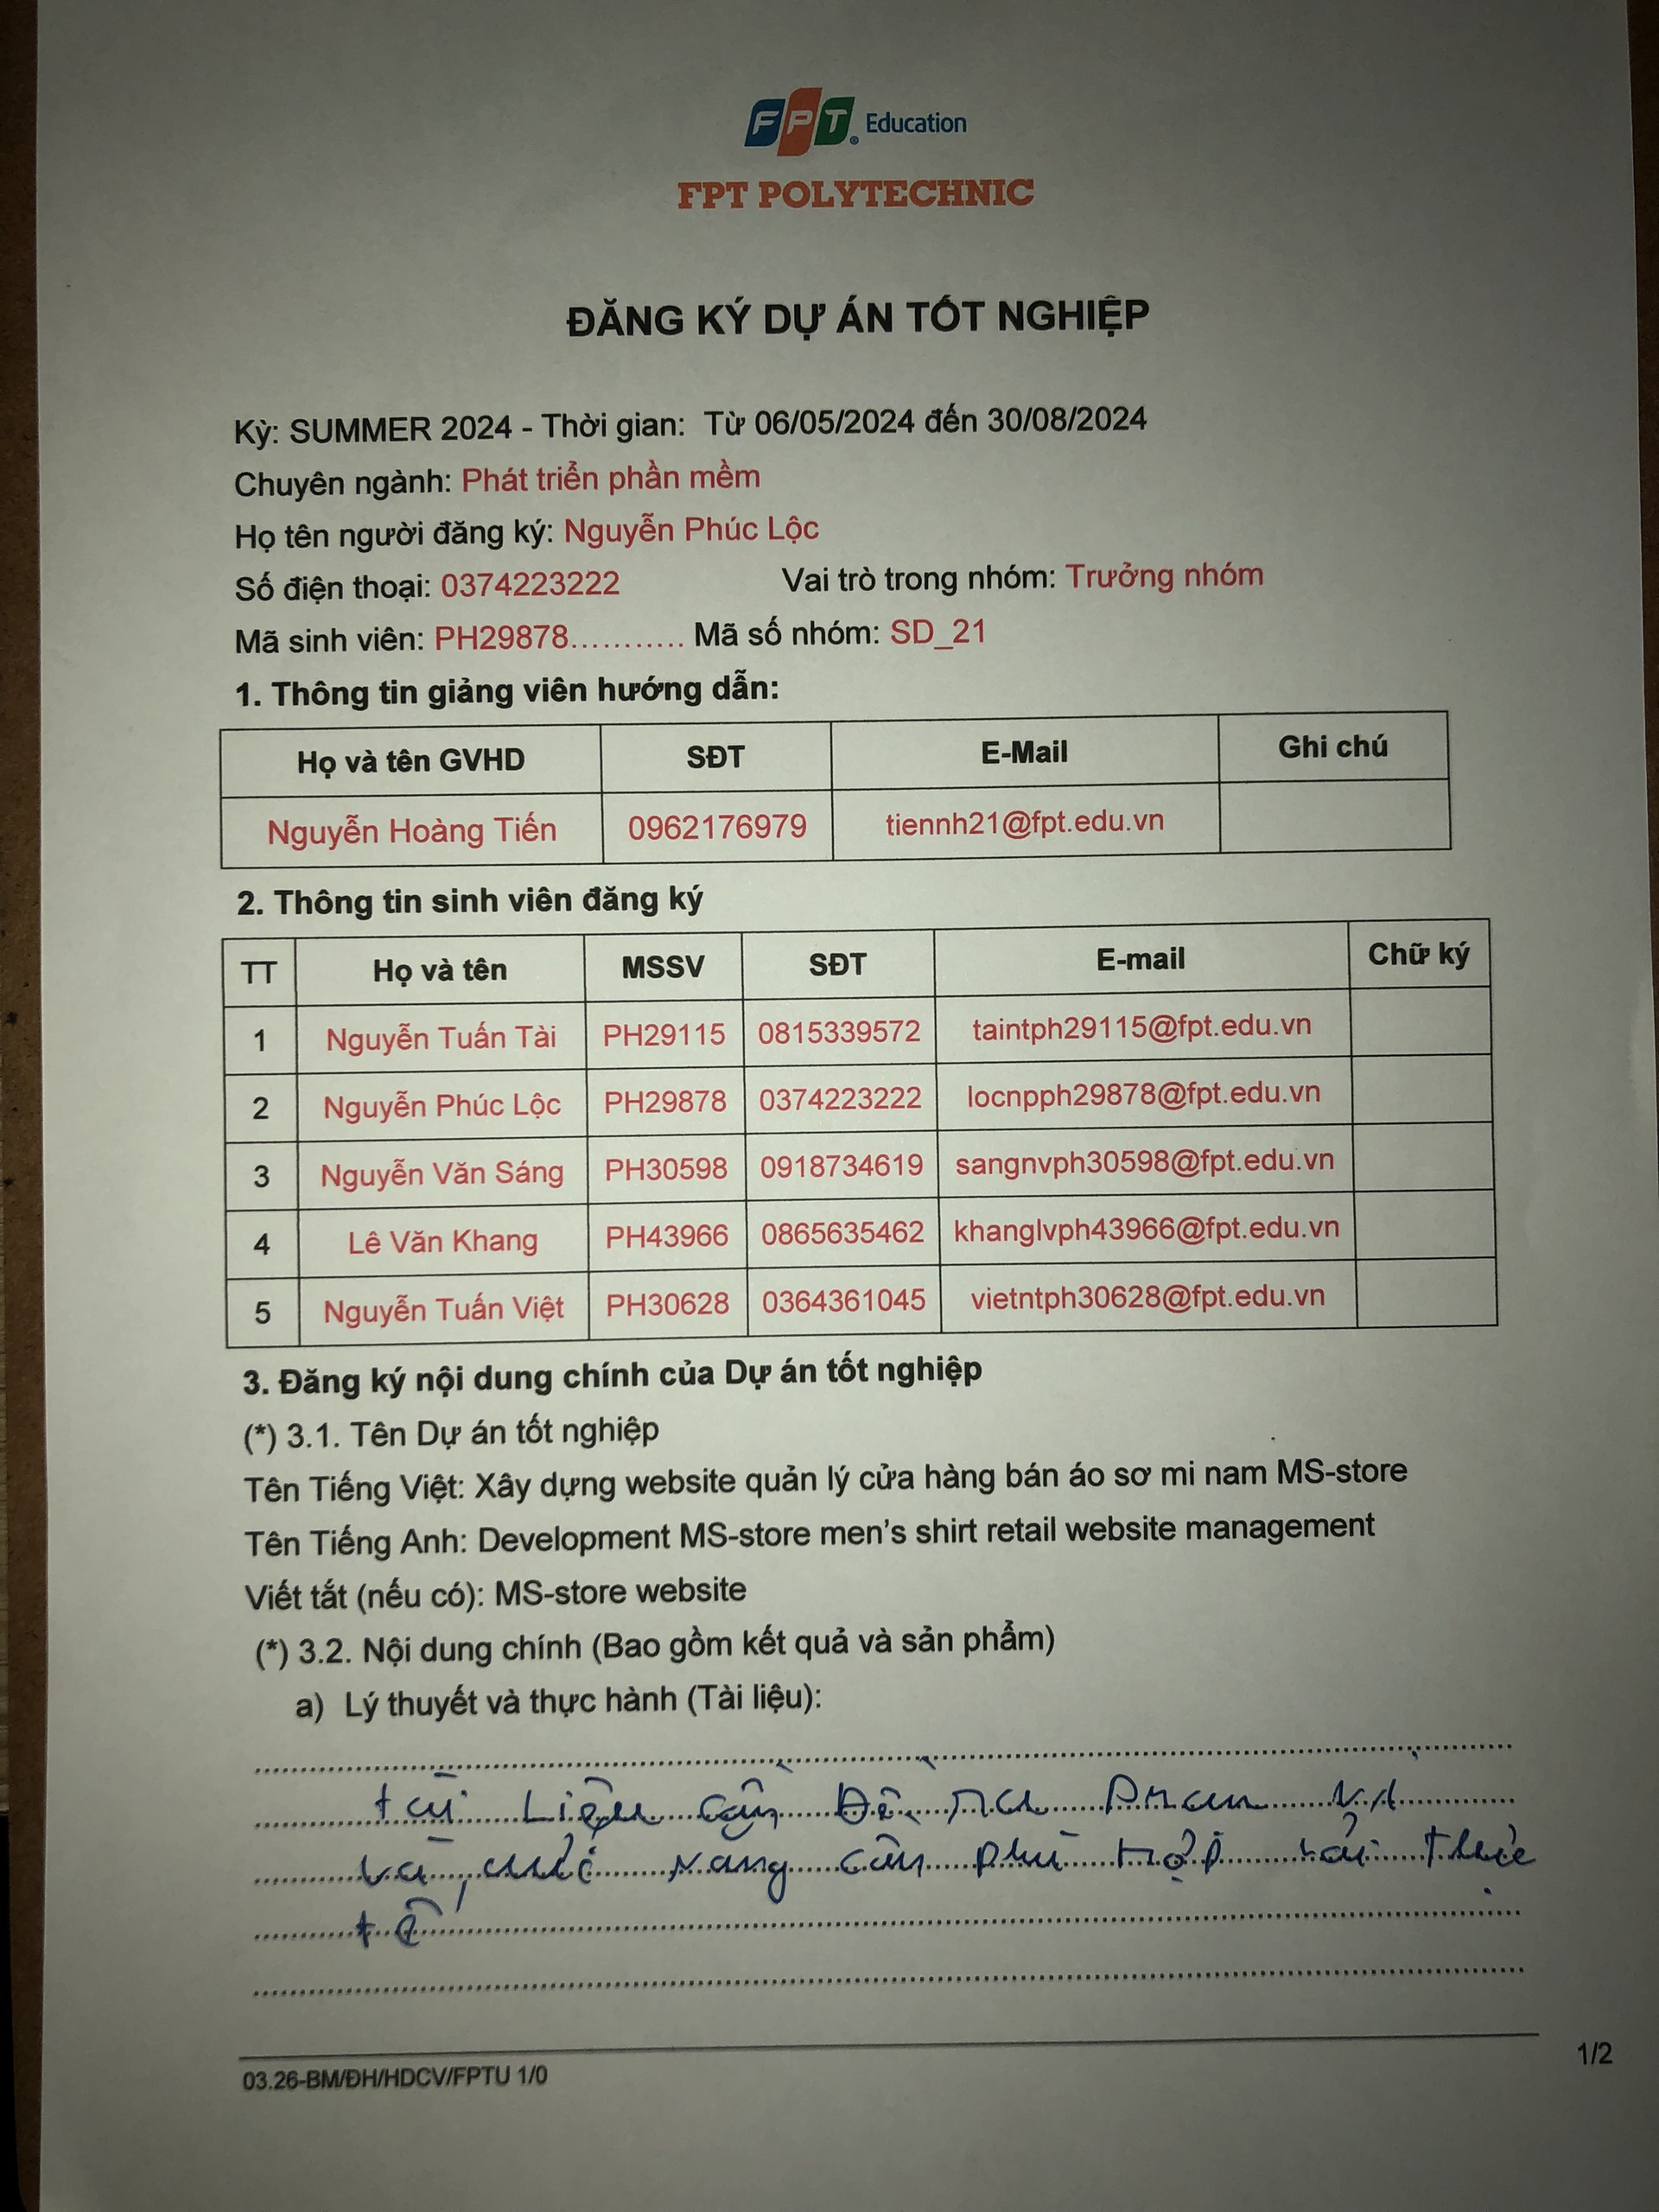 FPT Education
FPT POLYTECHNIC
ĐĂNG KÝ DỰ ÁN TỐT NGHIỆP
Kỳ: SUMMER 2024 - Thời gian: Từ 06/05/2024 đến 30/08/2024
Chuyên ngành: Phát triển phần mềm
Họ tên người đăng ký: Nguyễn Phúc Lộc
Số điện thoại: 0374223222 Vai trò trong nhóm: Trưởng nhóm
Mã sinh viên: PH29878........... Mã số nhóm: SD_21
1. Thông tin giảng viên hướng dẫn:
Họ và tên GVHD SĐT E-Mail Ghi chú
Nguyễn Hoàng Tiến 0962176979 tiennh21@fpt.edu.vn
2. Thông tin sinh viên đăng ký
TT Họ và tên MSSV SĐT E-mail Chữ ký
1 Nguyễn Tuấn Tài PH29115 0815339572 taintph29115@fpt.edu.vn
2 Nguyễn Phúc Lộc PH29878 0374223222 locnpph29878@fpt.edu.vn
3 Nguyễn Văn Sáng PH30598 0918734619 sangnvph30598@fpt.edu.vn
4 Lê Văn Khang PH43966 0865635462 khanglvph43966@fpt.edu.vn
5 Nguyễn Tuấn Việt PH30628 0364361045 vietntph30628@fpt.edu.vn
3. Đăng ký nội dung chính của Dự án tốt nghiệp
(*) 3.1. Tên Dự án tốt nghiệp
Tên Tiếng Việt: Xây dựng website quản lý cửa hàng bán áo sơ mi nam MS-store
Tên Tiếng Anh: Development MS-store men's shirt retail website management
Viết tắt (nếu có): MS-store website
(*) 3.2. Nội dung chính (Bao gồm kết quả và sản phẩm)
a) Lý thuyết và thực hành (Tài liệu):
tài liệu cần Đề ra
và chức năng cần phù hợp với thức
tế
03.26-BM/ĐH/HDCV/FPTU 1/0
1/2